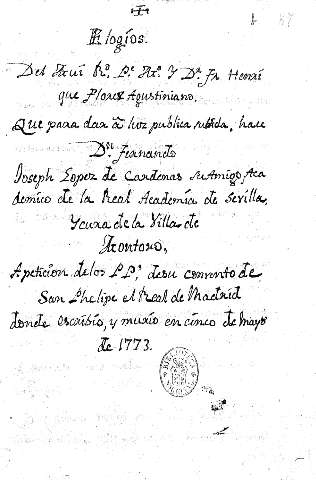 Elogios.
Del Mui Ro. Pe. Mo. Y Dr. Fr Henri
que Florez Agustiniano,
Que para dar â luz publica rubrida, hace
Dn. Fernando
Joseph Lopez de Cardenas su Amigo, Aca
demico de la Real Academia de Sevilla,
Y cura de la Villa de
Montoro,
A peticion de los PPs. de su convento de
San Phelipe el Real de Madrid
donde escribio, y murio en cinco de Mayo
de 1773.